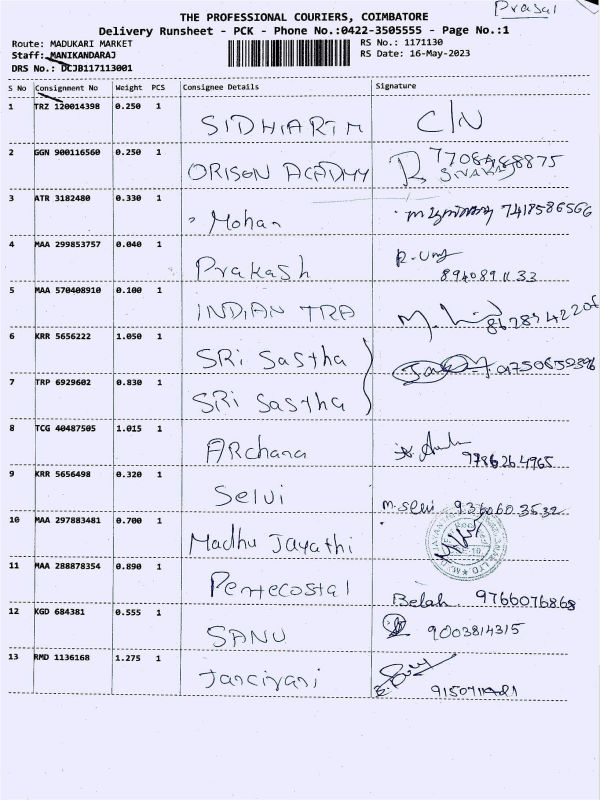 Prasal
THE PROFESSIONAL COURIERS, COIMBATORE
Delivery Runsheet - PCK - Phone No.:0422-3505555 - Page No.:1
Route: MADUKARI MARKET RS No.: 1171130
Staff: MANIKANDARAJ RS Date: 16-May-2023
DRS No.: DCJB117113001
S No Consignment No Weight PCS Consignee Details Signature
1 TRZ 120014398 0.250 1 SIDHIARTH C/N
2 GGN 900116560 0.250 1 ORISON ACADMY 7708468875
SIVARAJ
3 ATR 3182480 0.330 1 Mohan 7418586566
4 MAA 299853757 0.040 1 Prakash 8940891133
5 MAA 570408910 0.100 1 INDIAN TRA
6 KRR 5656222 1.050 1 SRi Sastha
7 TRP 6929602 0.830 1 SRi Sastha
8 TCG 40487505 1.015 1 ARchana 9786264965
9 KRR 5656498 0.320 1 Selvi M. Selvi 9360603532
10 MAA 297883481 0.700 1 Madhu Jayathi
11 MAA 288878354 0.890 1 Pentecostal Belah 9766076868
12 KGD 684381 0.555 1 SANU 9003814315
13 RMD 1136168 1.275 1 Janciyani